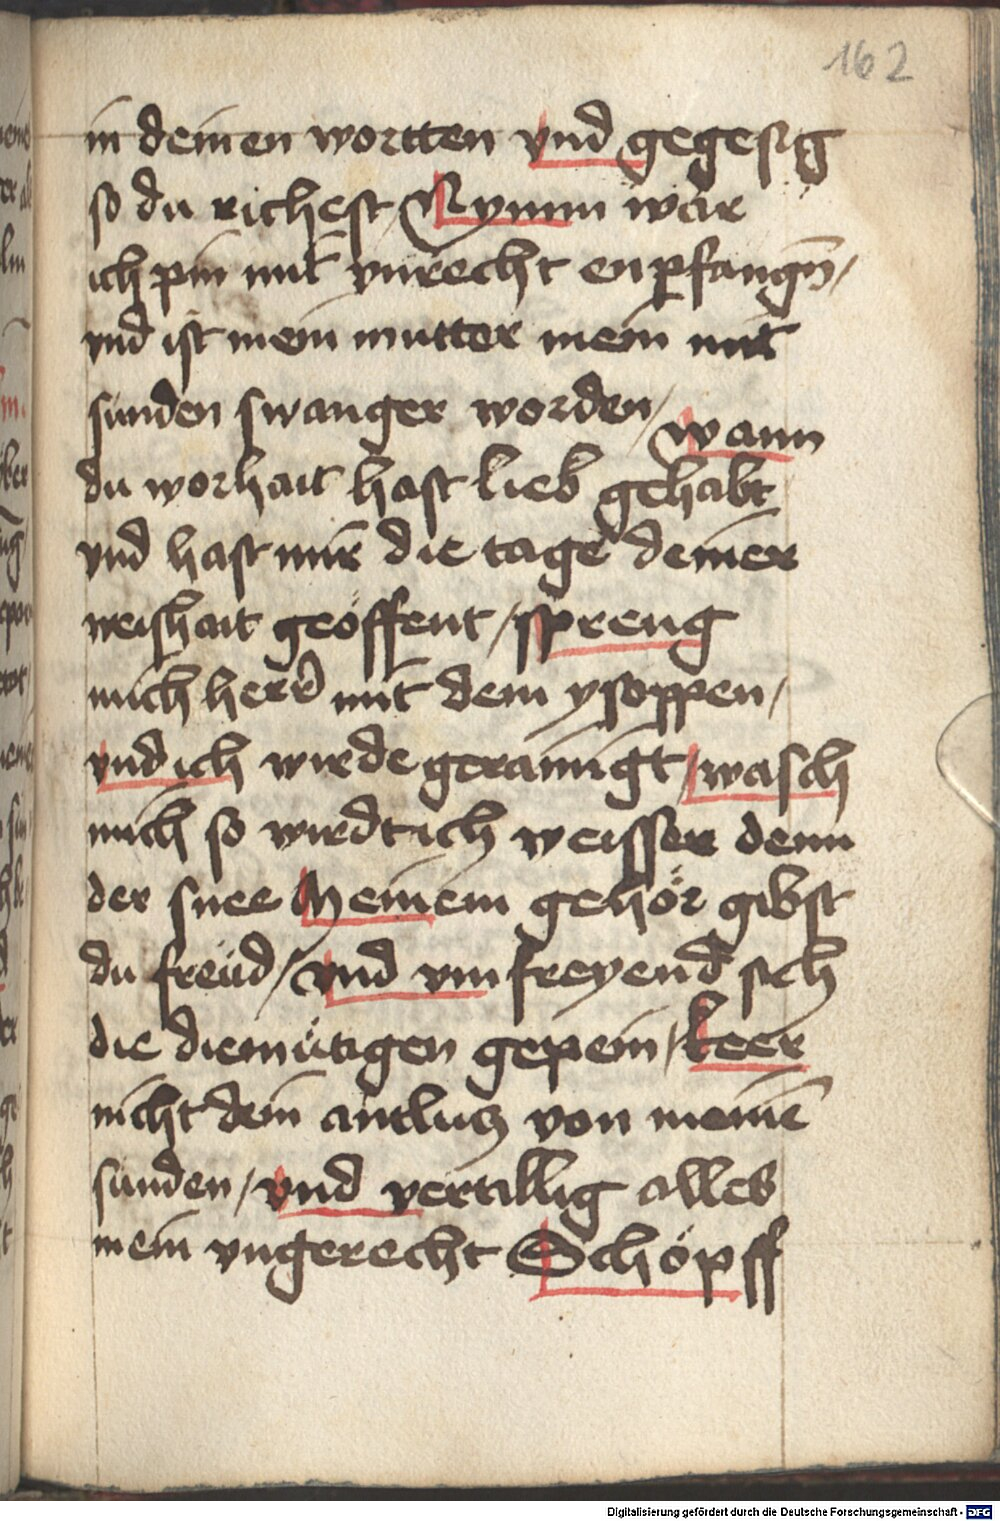 162
in deinen wortten vnd gegesig
so du richest Nymm war
ich pin mit vnrecht enpfangn̄/
vnd ist mein mutter mein mit
sunden swanger worden/ wann
du worhait hast lieb gehabt
vnd hast mir die tage deiner
weishait geöffent/ spreng
mich herr mit dem ysoppen/
vnd ich wirde gerainigt/ wasch
mich so wirdt ich weisser denn
der snee Meinem gehör gibst
du freüd/ vnd vm freyend sich
die diemütigen gepein/ keer
nicht dein antlutz von meinē
sünden/ vnd vertillig alles
mein vngerecht Schöpff
Digitalisierung gefördert durch die Deutsche Forschungsgemeinschaft - DFG